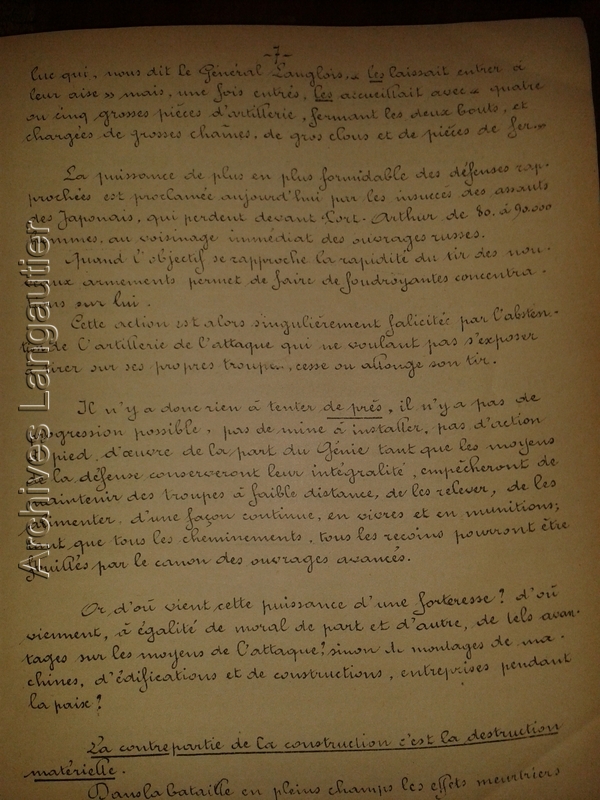 -7-
luc qui, nous dit le Général Langlois, « les laissait entrer à
leur aise » mais, une fois entrés, les accueillait avec « quatre
ou cinq grosses pièces d'artillerie, fermant les deux bouts, et
chargées de grosses chaînes, de gros clous et de pièces de fer. »
La puissance de plus en plus formidable des défenses rap-
prochées est proclamée aujourd'hui par les insuccès des assauts
des Japonais, qui perdent devant Port-Arthur de 80. à 90.000
ommes, au voisinage immédiat des ouvrages russes.
Quand l'objectif se rapproche la rapidité du tir des nou-
eux armements permet de faire de foudroyantes concentra-
ns sur lui.
Cette action est alors singulièrement falicitée par l'absten-
de l'artillerie de l'attaque qui ne voulant pas s'exposer
tirer sur ses propres troupes, cesse ou allonge son tir.
Il n'y a donc rien à tenter de près, il n'y a pas de
rogression possible, pas de mine à installer, pas d'action
pied d'œuvre de la part du Génie tant que les moyens
de la défense conserveront leur intégralité, empêcheront de
maintenir des troupes à faible distance, de les relever, de les
limenter, d'une façon continue, en vivres et en munitions;
tant que tous les cheminements, tous les recoins pourront être
fouillés par le canon des ouvrages avancés.
Or d'où vient cette puissance d'une forteresse? d'où
viennent, à égalité de moral de part et d'autre, de tels avan-
tages sur les moyens de l'attaque? sinon de montages de ma-
chines, d'édifications et de constructions, entreprises pendant
la paix?
La contrepartie de la construction c'est la destruction
matérielle.
Dans la bataille en pleins champs les effets meurtriers
Archives Langautier